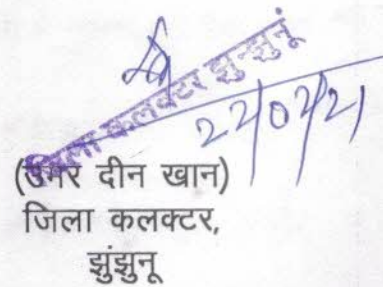 जिला कलक्टर झुन्झुनूं
22/02/21
(उमर दीन खान)
जिला कलक्टर,
झुंझुनू